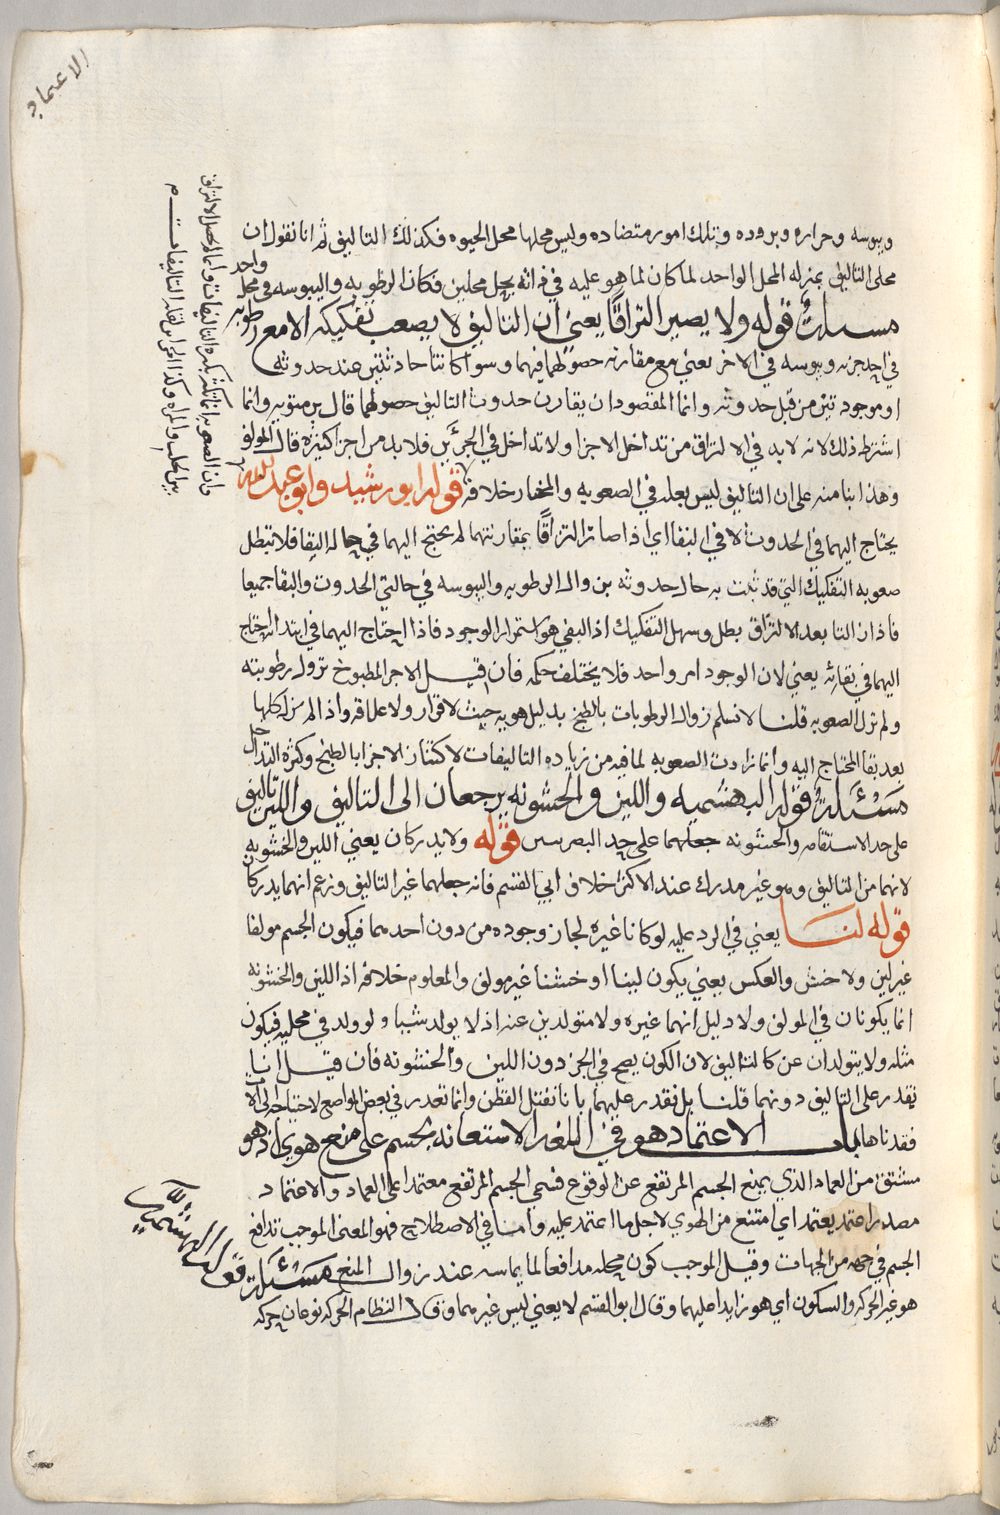 الاعتماد
ويبوسه وحراره وبروده وتلك امور متضاده وليس محلها محل الحيوه فكذلك التاليف ثم انا نقول ان
محلى التاليف بمنزله المحل الواحد لما كان لما هو عليه في ذاته يحل محلين فكان الرطوبه واليبوسه في محل واحد
مسئلة قوله ولا يصير التزاقًا يعني ان التاليف لا يصعب تفكيكه الا مع رطوبه
في احد جزئه ويبوسه في الاخر يعني مع مقارنه حصولهما فيهما وسوآ كانتا حادثتين عند حدوثه
او موجودتين من قبل حدوثه وانما المقصود ان يقارن حدوث التاليف حصولهما قال بن متويه وانما
اشترط ذلك لانه لا بد في الالتزاق من تداخل الاجزا ولا تداخل في الجزئين فلا بد من اجزا كثيره قال المولف
وهذا بنا منه على ان التاليف ليس بعله في الصعوبه والمختار خلافه قوله ابو رشيد وابو عبد الله لا
يحتاج اليهما في الحدوث لا في البقا اي اذا صار التزاقًا بمقارنتهما لم يحتج اليهما في حاله البقا فلا تبطل
صعوبه التفكيك التي قد ثبتت به حال حدوثه بزوال الرطوبه واليبوسه في حالتي الحدوث والبقا جميعا
فاذا زالتا بعد الالتزاق بطل وسهل التفكيك اذ البقي هو استمرار الوجود فاذا احتاج اليهما في ابتدائه احتاج
اليهما في بقائه يعني لان الوجود امر واحد فلا يختلف حكمه فان قيل الاجر المطبوخ تزول رطوبته
ولم تزل الصعوبه قلنا لا نسلم زوال الرطوبات بالطبخ بدليل هويه حيث لا قرار ولا علاقه واذا لم تزل كلها
بعد بقا المحتاج اليه وانما زادت الصعوبه لما فيه من زياده التاليفات لاكتناز الاجزا بالطبخ وكثره التداخل
مسئلة قوله البهشميه واللين والخشونه يرجعان الى التاليف واللين تاليف
على حد الاستقامه والخشونه جعلهما على حد البصرىىں قوله ولا يدركان يعني اللين والخشونه
لانهما من التاليف وهو غير مدرك عند الاكثر خلاف ابي القسم فانه جعلهما غير التاليف وزعم انهما يدركان
قوله لنا يعني في الرد عليه لو كانا غيره لجاز وجوده من دون احدهما فيكون الجسم مولفا
غير لين ولا خشن والعكس يعني يكون لينا او خشنا غير مولف والمعلوم خلافه اذ اللين والخشونه
انما يكونان في المولف ولا دليل انهما غيره ولا متولدين عنه اذ لا يولد شيا ولو ولد في محليه فيكون
مثله ولا يتولدان عن كالتاليف لان الكون يصح في الجزء دون اللين والخشونه فان قيل انا
نقدر على التاليف دونهما قلنا بل نقدر عليهما بانا نفتل القطن وانما تعذر في بعض المواضع لاحتياجه الى آلا
فقدناها باب الاعتماد هو في اللغه الاستعانه بجسم على منع هوي اذ هو
مشتق من العماد الذي يمنع الجسم المرتفع عن الوقوع فسمي الجسم المرتفع معتمدا على العماد والاعتماد
مصدر اعتمد يعتمد اي امتنع من الهوي لاجل ما اعتمد عليه واما في الاصطلاح فهو المعنى الموجب تدافع
الجسم في جهه من الجهات وقيل الموجب كون محله مدافعا لما يماسه عند زوال المنع مسئلة قوله البهشميه
هو غير الحركه والسكون اي هو زايدا عليهما وقال ابو القسم لا يعني ليس غيرهما وقال النظام الحركه نوعان حركه
وان الصعوبه انما تكثر بكثره التاليفات وانما لم يحصل الالتزاق
بين الحليب والمراه وكذا الحرابن لقله التاليفات م